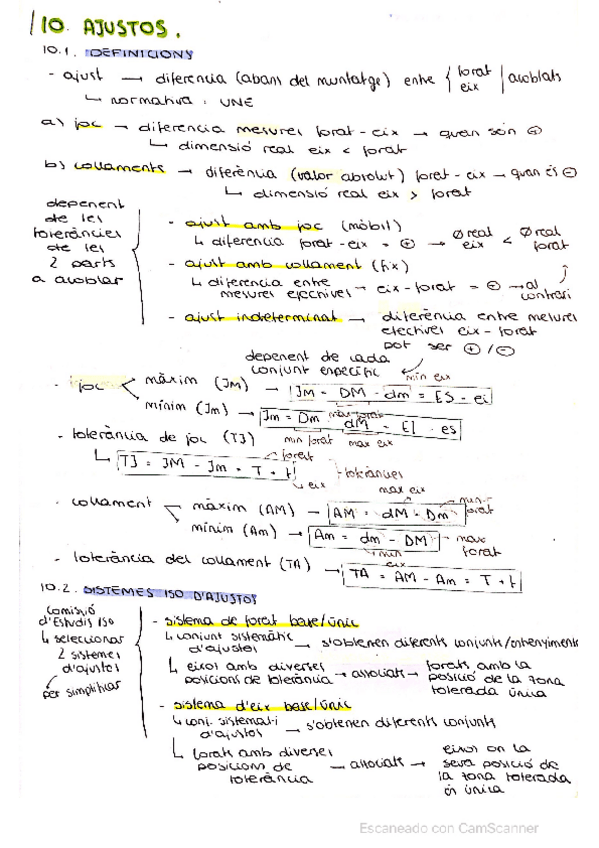 10. AJUSTOS.
10.1. DEFINICIONS
- ajust → diferencia (abans del muntatge) entre { forat / eix | acoblats
↳ normativa : UNE
a) joc → diferencia mesures forat - eix → quan són ⊕
↳ dimensió real eix < forat
b) collaments → diferència (valor absolut) forat - eix → quan és ⊖
↳ dimensió real eix > forat
depenent de les toleràncies de les 2 parts a acoblar
- ajust amb joc (mòbil)
↳ diferencia forat - eix = ⊕ → Ø real eix < Ø real forat
- ajust amb collament (fix)
↳ diferencia entre mesures efectives → eix - forat = ⊖ → al contrari
- ajust indeterminat → diferència entre mesures efectives eix - forat pot ser ⊕ / ⊖
depenent de cada conjunt específic
- joc
màxim (JM) → JM = DM - dm = ES - ei
min eix
max forat
mínim (Jm) → Jm = Dm - dM = EI - es
min forat max eix
- tolerància de joc (TJ)
↳ TJ = JM - Jm = T + t
forat
eix
toleràncies
- collament
max eix
màxim (AM) → AM = dM - Dm
min. forat
mínim (Am) → Am = dm - DM
max forat
min eix
- tolerància del collament (TA) → TA = AM - Am = T + t
10.2. SISTEMES ISO D'AJUSTOS
comissió d'Estudis ISO
↳ seleccionar 2 sistemes d'ajustos
→ per simplificar
- sistema de forat base/únic
↳ conjunt sistemàtic d'ajustos → s'obtenen diferents conjunts/
↳ eixos amb diverses posicions de tolerància → associats → forats amb la posició de la zona tolerada única
- sistema d'eix base/únic
↳ conj. sistemàti d'ajustos → s'obtenen diferents conjunts
↳ forats amb diverses posicions de tolerància → associats → eixos on la seva posició de la zona tolerada és única
Escaneado con CamScanner